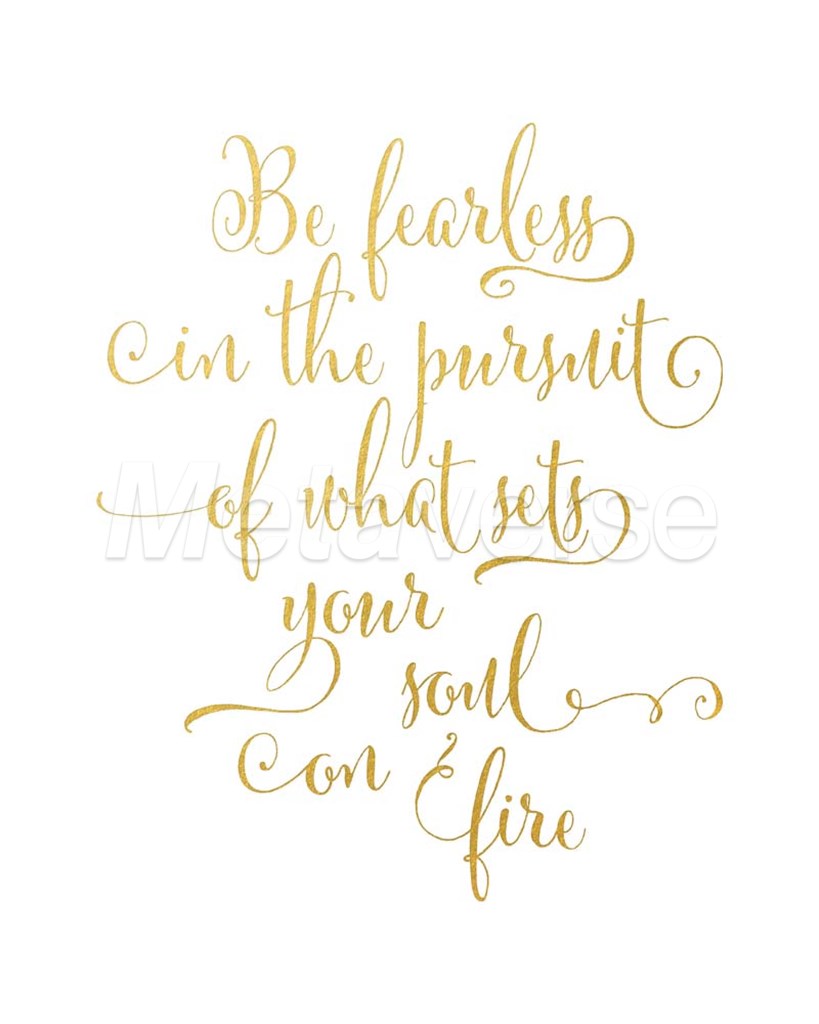 Be fearless
in the pursuit
of what sets
Metaverse
your
soul
on fire